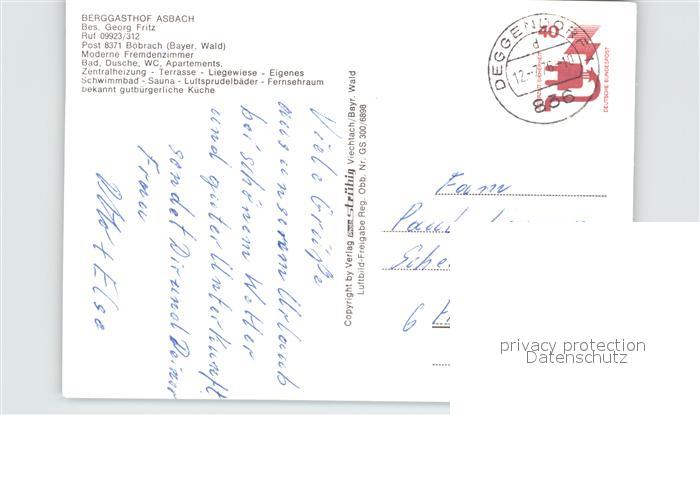 BERGGASTHOF ASBACH
Bes. Georg Fritz
Ruf 09923/312
Post 8371 Böbrach (Bayer. Wald)
Moderne Fremdenzimmer
Bad, Dusche, WC, Apartements.
Zentralheizung - Terrasse - Liegewiese - Eigenes
Schwimmbad - Sauna - Luftsprudelbäder - Fernsehraum
bekannt gutbürgerliche Küche
Viele Grüße
aus unserem Urlaub
bei schönem Wetter
und guter Unterkunft
sendet Dir und Deiner
Frau
Otto + Else
Copyright by Verlag Strübig Viechtach/Bayr. Wald
Luftbild-Freigabe Reg. Obb. Nr. GS 300/6898
DEGGENDORF
d
12.
836
40
DEUTSCHE BUNDESPOST
Fam
Paul
Sche
6
privacy protection
Datenschutz